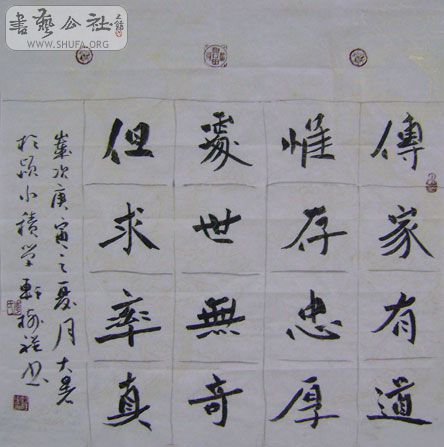 書藝公社
WWW.SHUFA.ORG
傳家有道
惟存忠厚
處世無奇
但求率真
歲次庚寅之夏月大暑
於 小積 軒 書